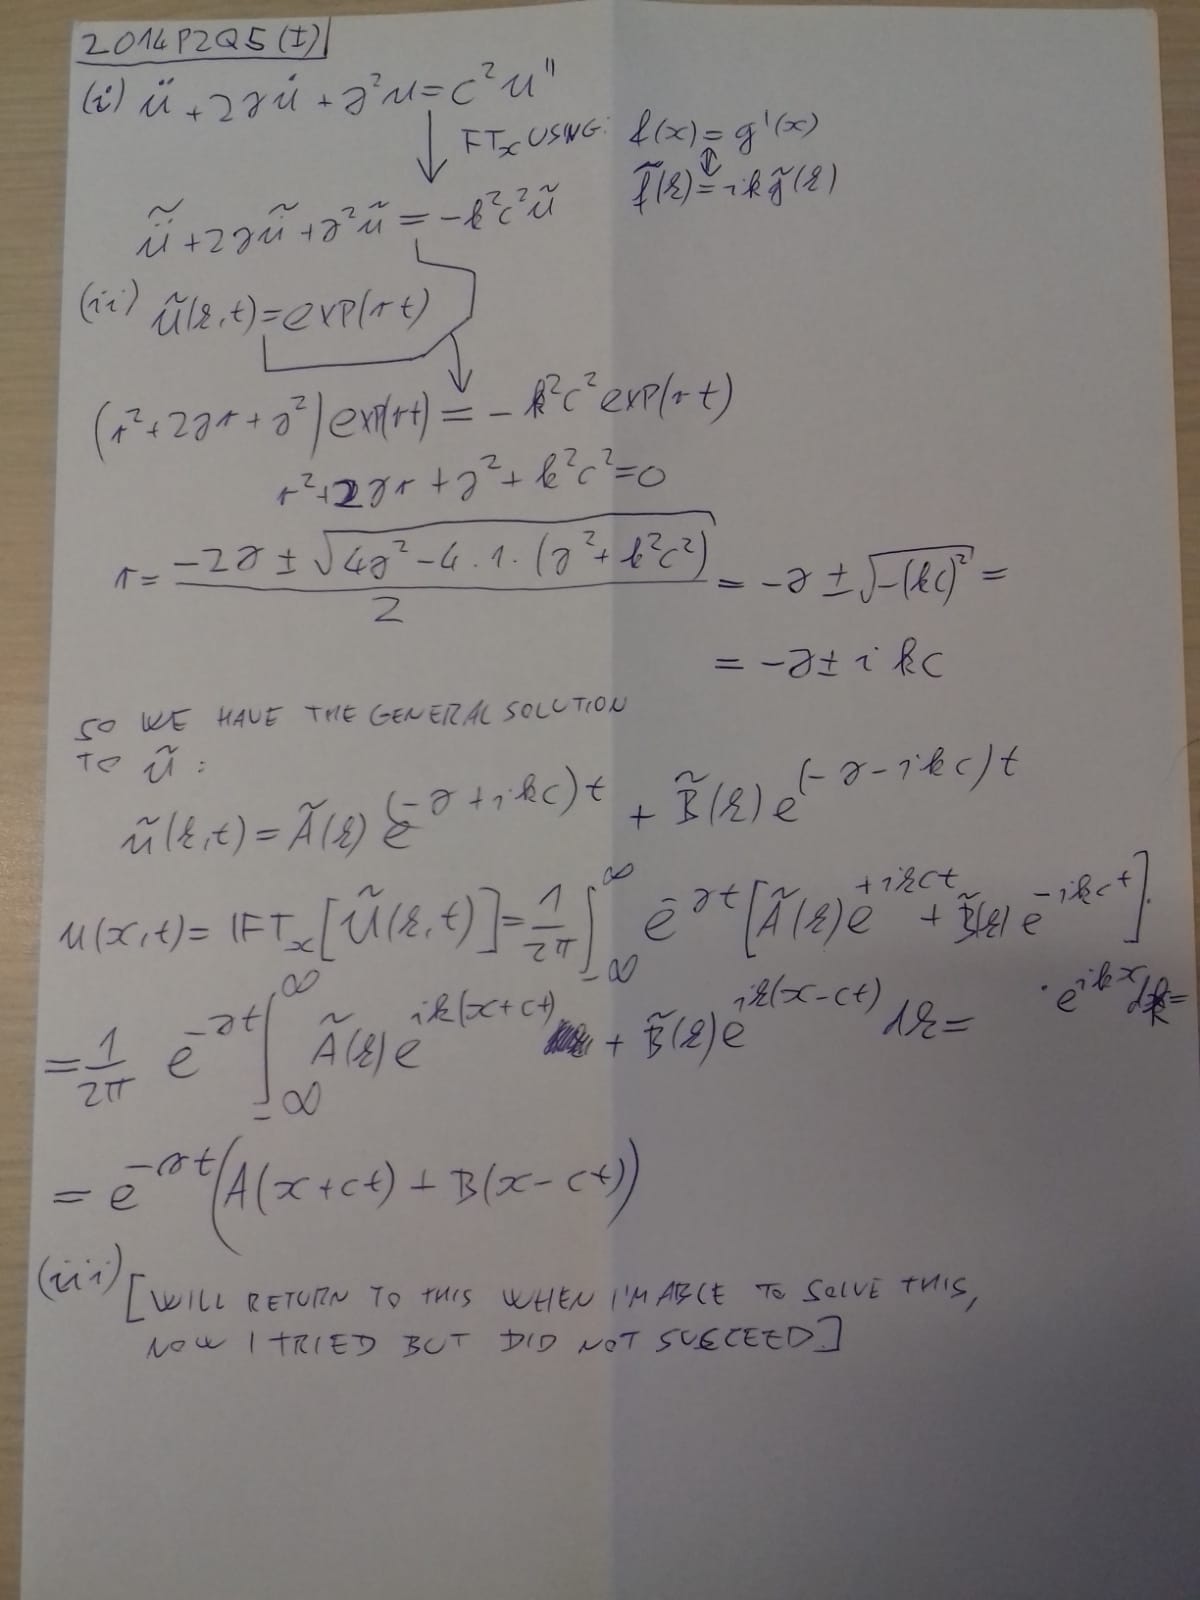 2014P2Q5(I)
(i) ü + 2γu̇ + γ²u = c²u''
FTₓ USING: f(x) = g'(x)
f̃(k) = ik g̃(k)
ü̃ + 2γu̇̃ + γ²ũ = -k²c²ũ
(ii) ũ(k,t) = exp(rt)
(r² + 2γr + γ²) exp(rt) = -k²c² exp(rt)
r² + 2γr + γ² + k²c² = 0
r = (-2γ ± √(4γ² - 4·1·(γ² + k²c²)))/2 = -γ ± √(-(kc)²) =
= -γ ± i kc
SO WE HAVE THE GENERAL SOLUTION
TO ũ:
ũ(k,t) = Ã(k) e^(-γ+ikc)t + B̃(k) e^(-γ-ikc)t
u(x,t) = IFTₓ[ũ(k,t)] = 1/2π ∫_-∞^∞ e^-γt [Ã(k)e^+ikct + B̃(k)e^-ikct]·
·e^ikx dk =
= 1/2π e^-γt ∫_-∞^∞ Ã(k)e^ik(x+ct) + B̃(k)e^ik(x-ct) dk =
= e^-γt (A(x+ct) + B(x-ct))
(iii) [WILL RETURN TO THIS WHEN I'M ABLE TO SOLVE THIS,
NOW I TRIED BUT DID NOT SUCCEED]